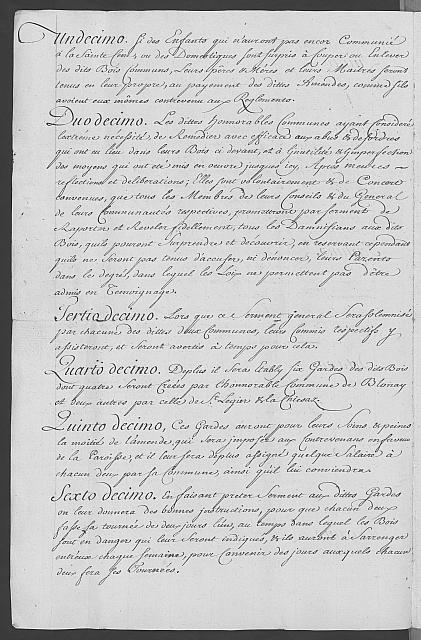 Undecimo. Si des Enfants qui n'auront pas encor Communié
à la Sainte Cene, ou des Domestiques sont surpris à Couper ou Enlever
des dits Bois Communs, Leurs Péres & Méres et Leurs Maitres seront
tenus en leur propre, au payement des dittes Amandes, comme s'ils
avoient eux mêmes contrevenu aux Reglements.
Duodecimo. Les dittes honnorables Communes ayant consideré
l'extreme necessité, de Remedier avec efficace aux abus & desordres
qui ont eu lieu dans leurs Bois ci devant, et à l'inutilité & l'imperfection
des moyens qui ont eté mis en oeuvre jusques icy, Après meures
reflections et deliberations; Elles sont volontairement & de Concert
convenues, que tous les Membres de leurs Conseils & du General
de leurs communautés respectives, promettront par serment de
Raporter et Reveler fidellement, tous les Damnifians aux dits
Bois, qu'ils pouront surprendre et decouvrir, en reservant cependant
qu'ils ne seront pas tenus d'accuser, ni dénoncer, leurs Parents
dans les degrés, dans lequel les Loix ne permettent pas d'être
admis en Temoignage.
Tertia decimo. Lors que ce Serment general sera solemnisé
par chacune des dittes deux Communes, leurs Commis respectifs y
assisteront, et seront avertis à temps pour cela.
Quarto decimo. Deplus il sera établi six Gardes des dits Bois
dont quatre seront Créés par l'honnorable Commune de Blonay
et deux autres par celle de St. Legier & la Chiesaz.
Quinto decimo, Ces Gardes auront pour leurs Soins & peines
la moitié de l'amende, qui sera imposée aux Contrevenans en faveur
de la Paroisse, et il leur sera deplus assigné quelque Salaire à
chacun d'eux par sa Commune, ainsi qu'il lui conviendra.
Sexto decimo. En faisant preter Serment aux dittes Gardes
on leur donnera des bonnes instructions, pour que chacun d'eux
fasse sa tournée de deux jours l'un, au temps dans lequel les Bois
sont en danger qui leur seront indiqués, & ils auront à s'arrenger
entr'eux chaque Semaine, pour Convenir des jours auxquels chacun
d'eux fera ses Tournées.